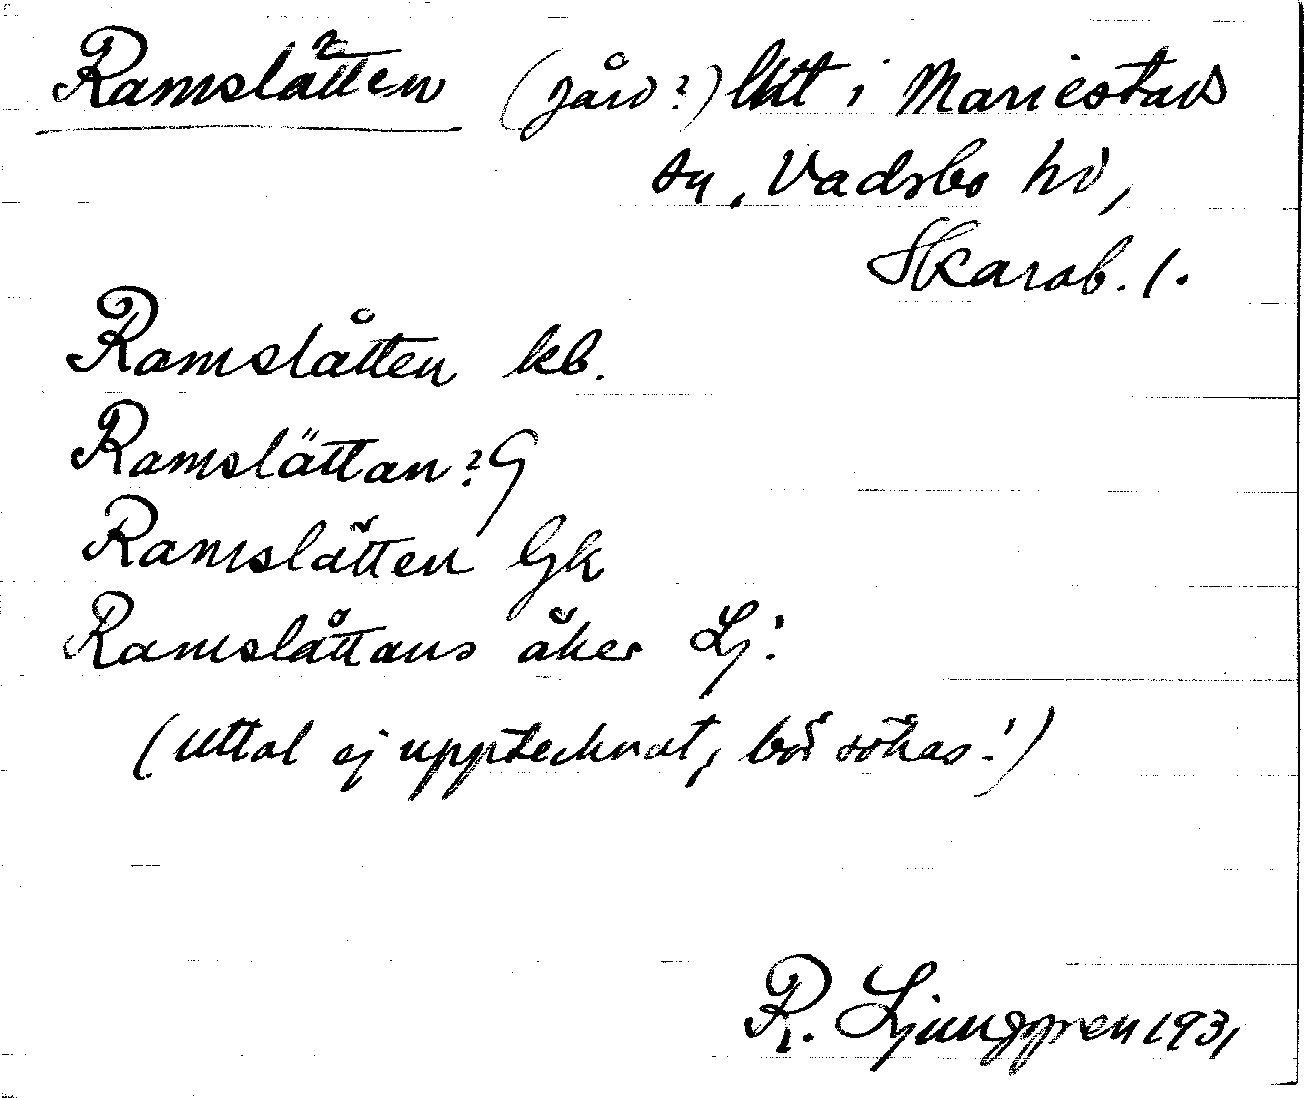 Ramslåtten (gård?) Utt i Mariestads
sn, Vadsbo hd,
Skarab. l.
Ramslåtten kb.
Ramslättan? G
Ramslåtten Gk
Ramslåttans åker Lj:
(Uttal ej upptecknat, bör sökas!)
R. Ljunggren 1931